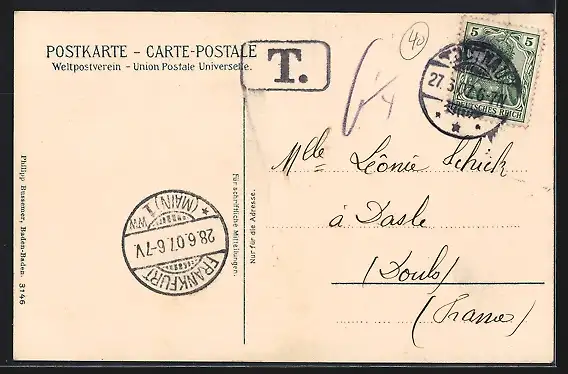 POSTKARTE – CARTE-POSTALE
Weltpostverein – Union Postale Universelle.
T.
40
5 5
DEUTSCHES REICH
27.
07.6-7
Mlle Léonie Schick
à Dasle
(Doubs)
(France)
Für schriftliche Mitteilungen.
Nur für die Adresse.
Philipp Bussemer, Baden-Baden. 3146
FRANKFURT
(MAIN) 1
28.6.07.6-7V.